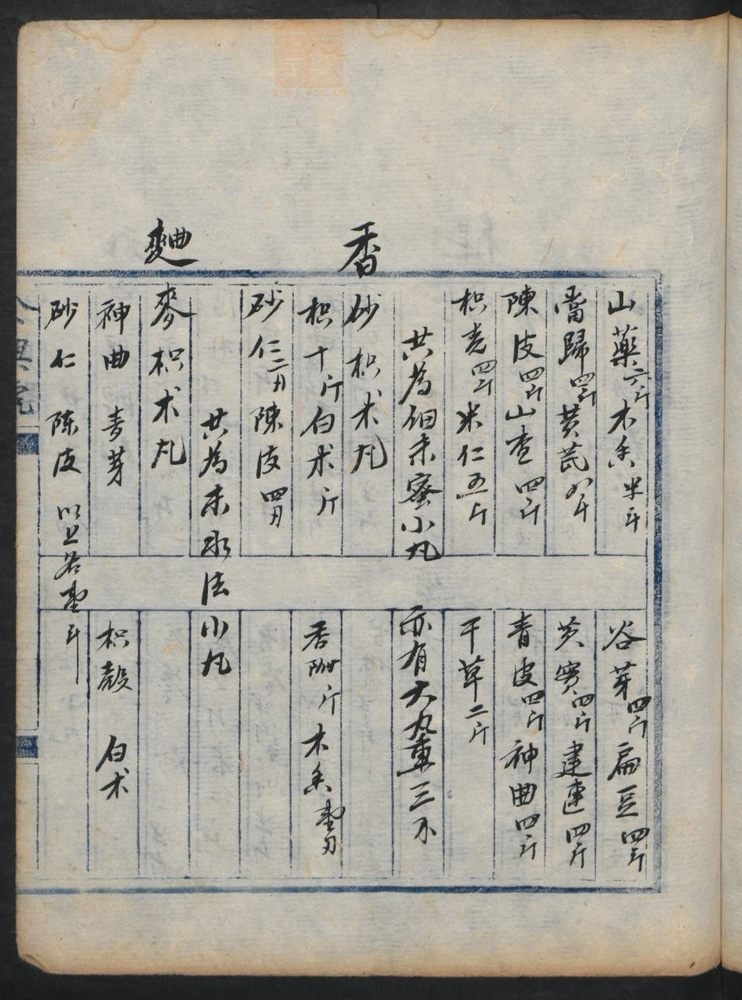 香
麯
山藥六斤 木香半斤 谷芽四斤 扁豆四斤
當歸四斤 黄芪八斤 芡實四斤 建連四斤
陳皮四斤 山查四斤 青皮四斤 神曲四斤
枳壳四斤 米仁五斤 干草二斤
共為細末蜜小丸 亦有大丸重三
砂枳术丸
枳十斤 白术斤 香附斤 木香
砂仁二刃 陳皮四刃
共為末水法小丸
麥枳术丸
神曲 麦芽 枳殼 白术
砂仁 陈皮 以上各 斤